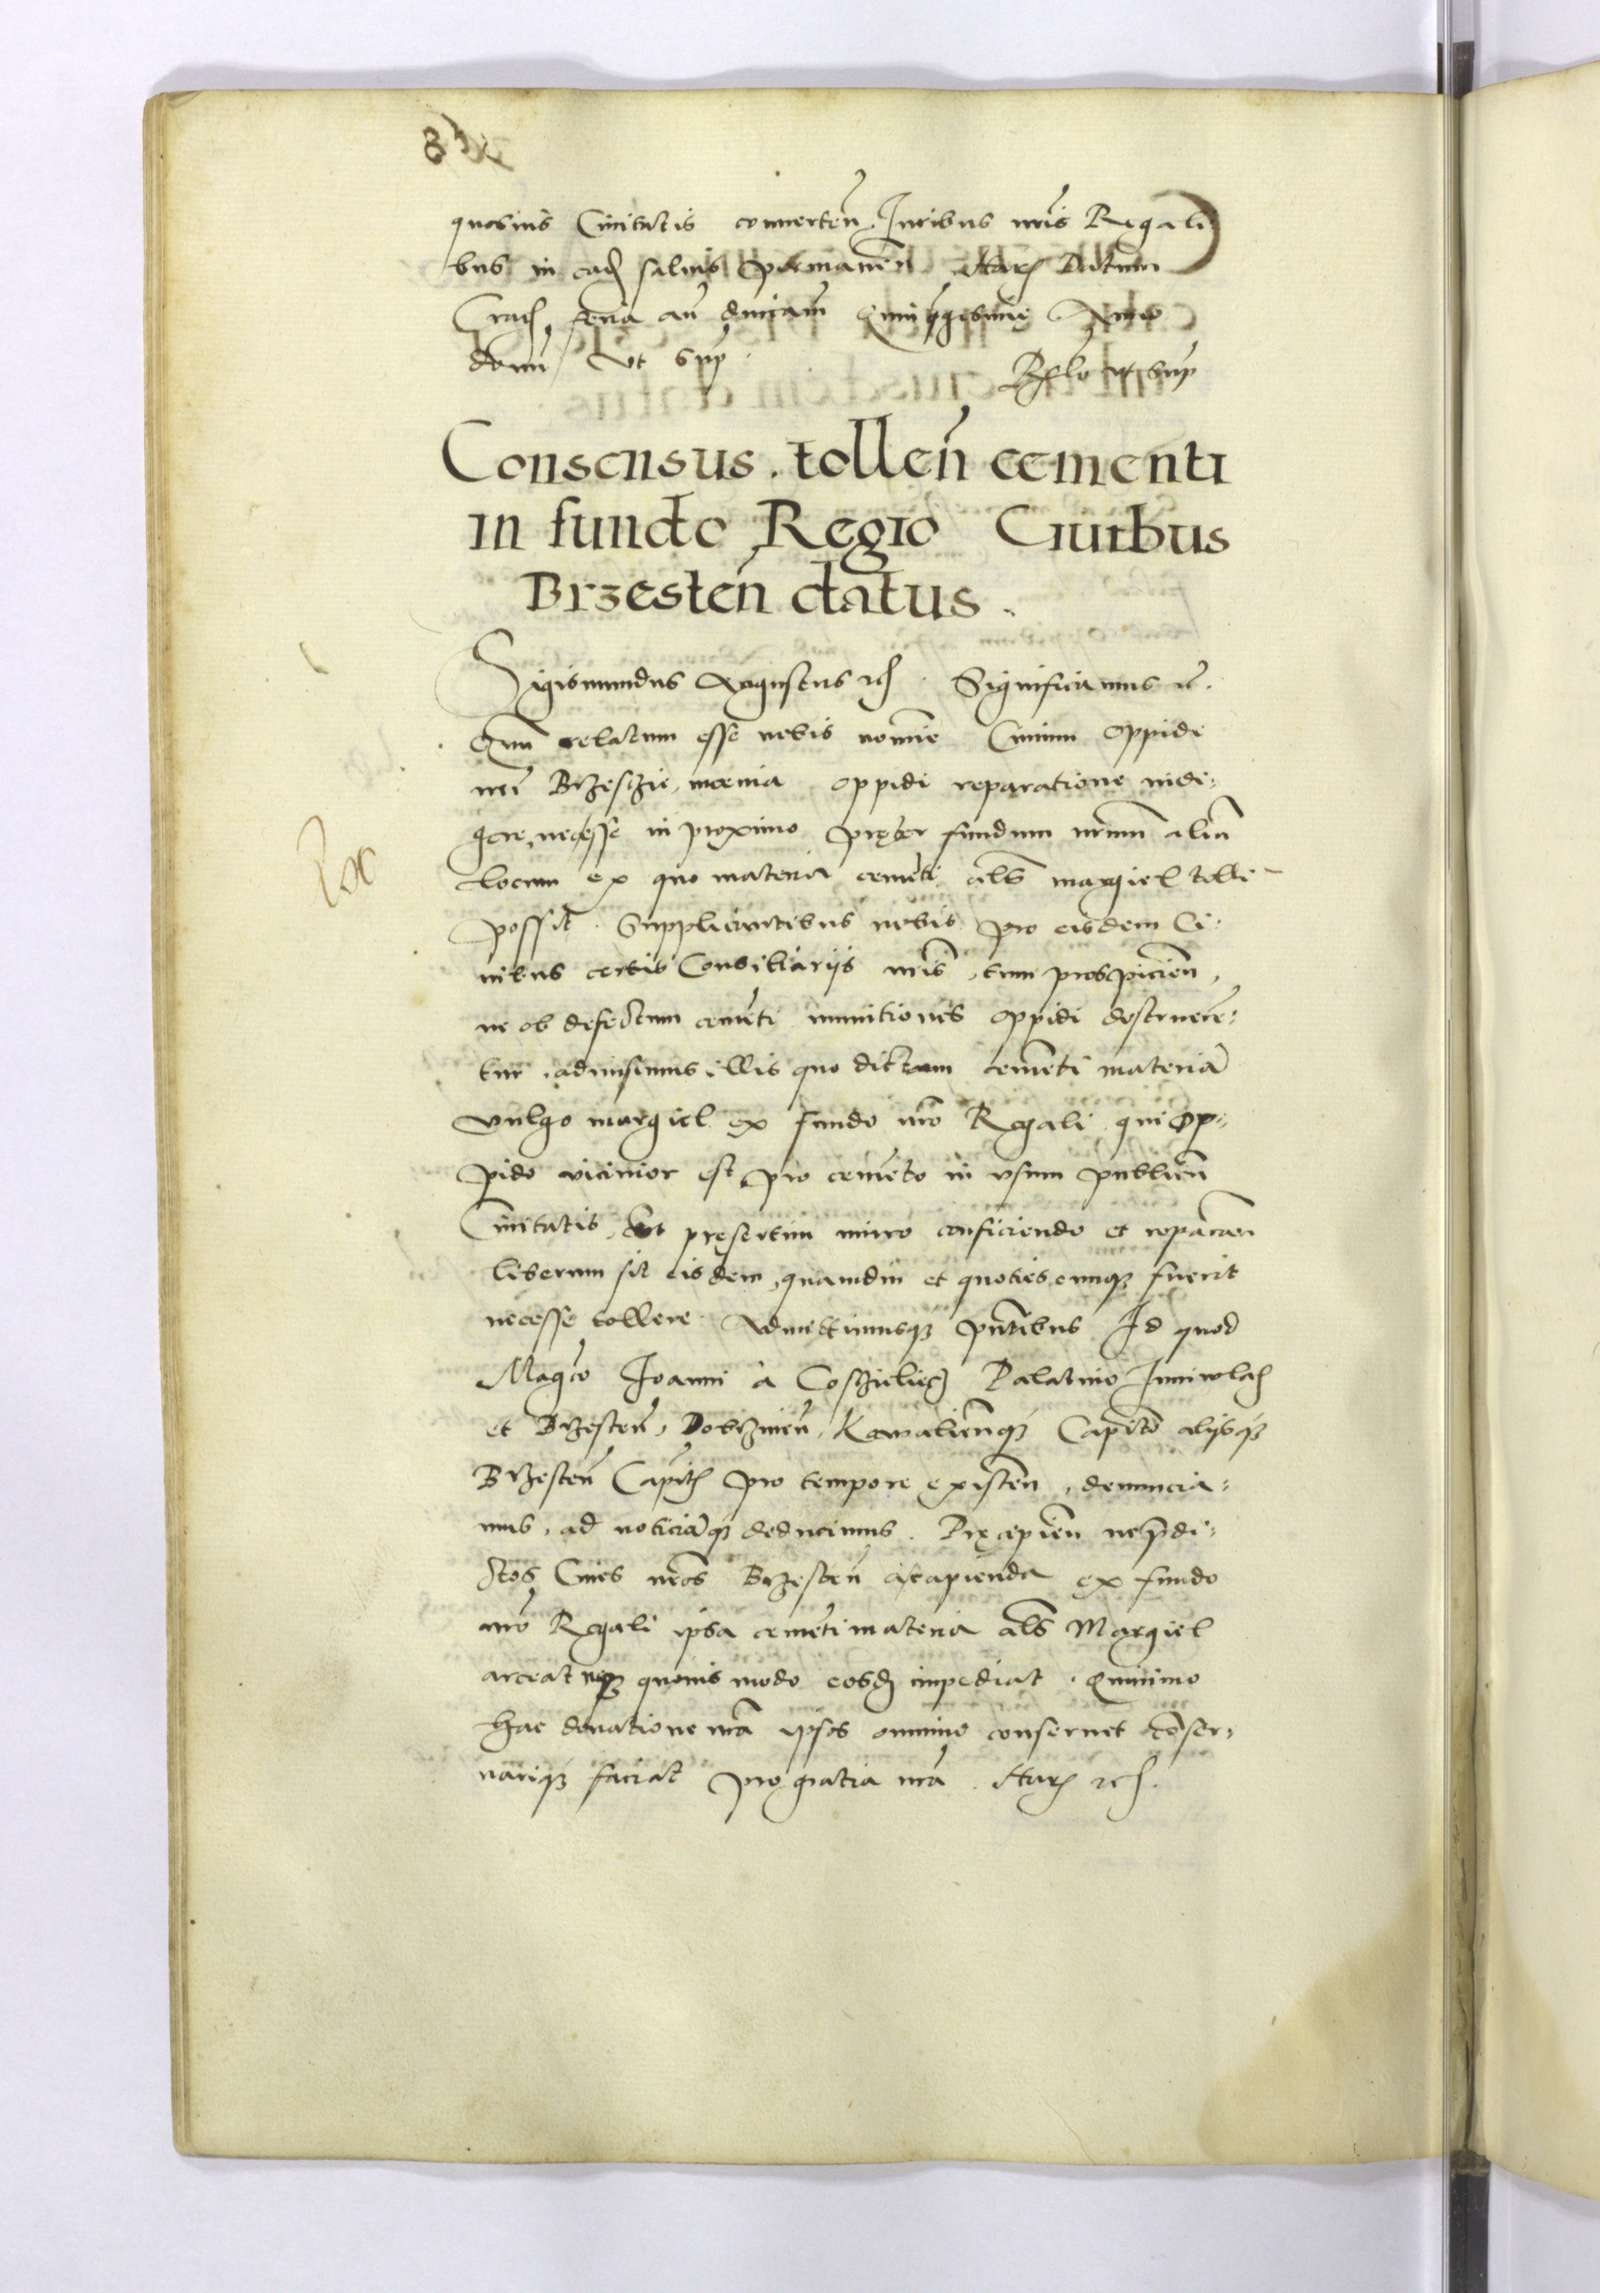 quosuis Ciuitatis conuerten. Iuribus nris Regali
bus in ead saluis permanen. Harz Datum
Crac feria an dnicam Quinqgesime Anno
domi Vt sup. Relo vt sup
Consensus . tollen cementi
in fundo Regio Ciuibus
Brzesten datus .
Sigismundus Augustus rc. Significamus rc.
Quu relatum esse nobis nomie Ciuium Oppidi
nri Brzesczie, moenia oppidi reparatione indi:
gere, necesse in proximo preter fundum nrum aliu
locum ex quo materia cemeti als margiel tolli
possit. Supplicantibus nobis pro eisdem Ci:
uibus certis Consiliarijs nris, tum prospicien,
ne ob defectum cemeti munitiones oppidi destruere:
tur, admisimus illis quo dictam cementi materia
vulgo margiel ex fundo nro Regali qui Op:
pido vicinior est, pro cemeto in vsum publicu
Ciuitatis, et presertim muro conficiendo et reparan
liberum sit eisdem, quamdiu et quotiescunqz fuerit
necesse tollere. Admittimusqz pntibus Id quod
Magco Ioanni à Cosczieliecz Palatino Iuniwlad
et Brzesten, Dobrzinen, Kowalienqz Capito alijsqz
Brzesten Capit pro tempore existen, denuncia:
mus, ad noticiaqz deducimus. Precipien ne pdi:
ctos Ciues nros Brzesten a capienda ex fundo
nro Regali ipsa cemeti materia als Margiel
arceat neqz quouis modo eosd impediat. Quinimo
hac donatione nra ipsos omnino conseruet coser:
uariqz faciat pro gratia nra. Harz rc.